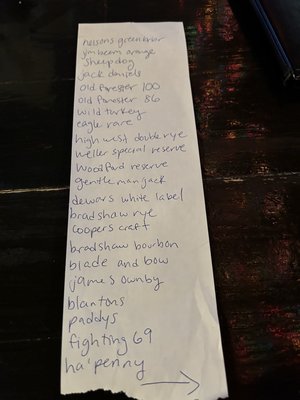 nelsons green brier
jim beam orange
Sheepdog
jack daniels
Old Forester 100
old forester 86
wild turkey
eagle rare
high west double rye
weller special reserve
Woodford reserve
gentleman jack
dewars white label
bradshaw rye
coopers craft
bradshaw bourbon
blade and bow
james ownby
blantons
paddys
fighting 69
ha'penny